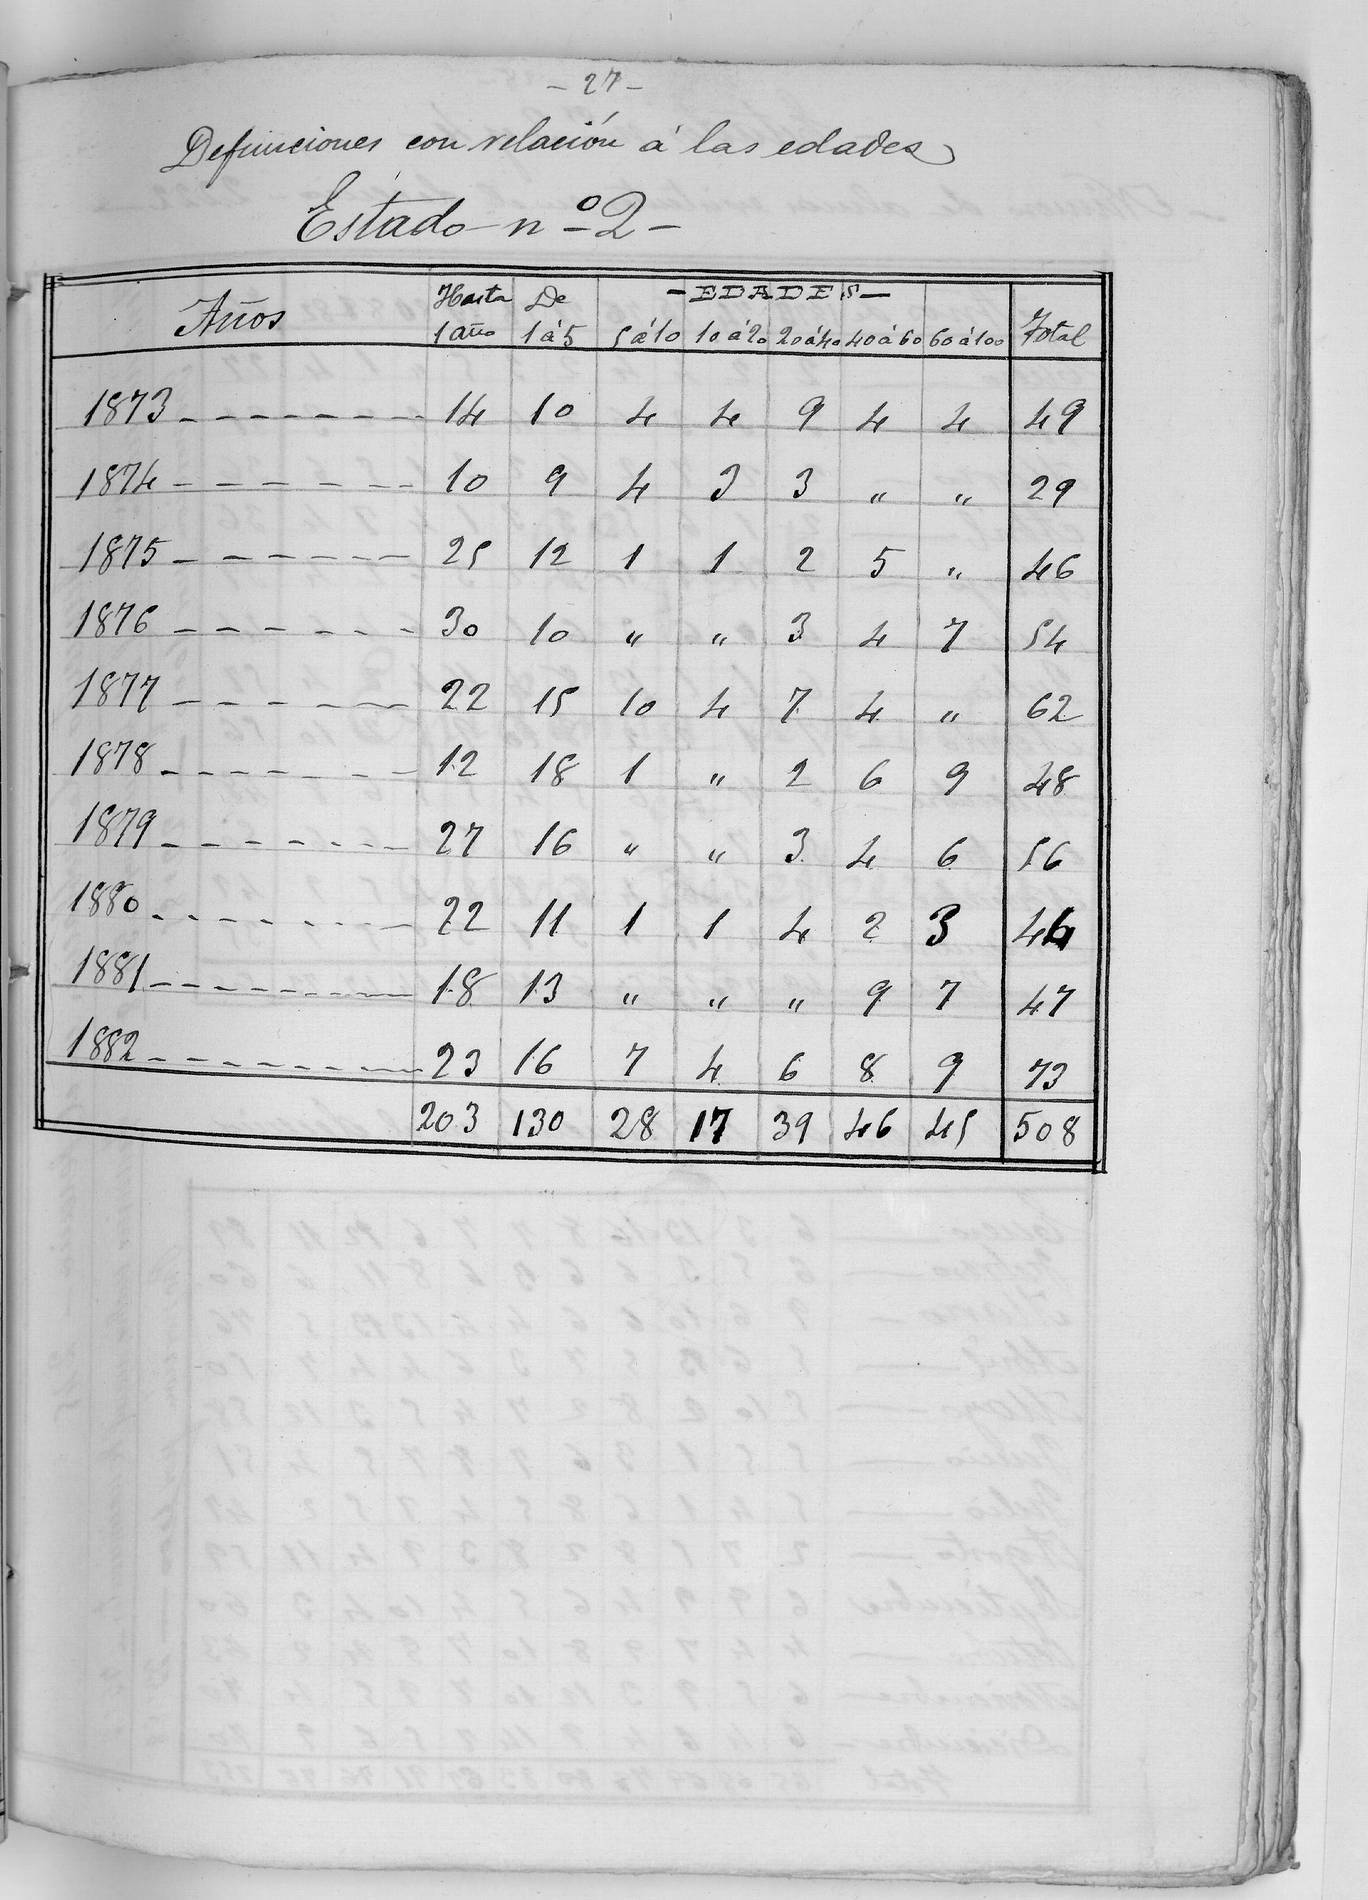 - 27 -
Defunciones con relación á las edades
Estado nº 2 -
Años Hasta 1 año De 1 á 5 - EDADES - 5 á 10 10 á 20 20 á 40 40 á 60 60 á 100 Total
1873 14 10 4 4 9 4 4 49
1874 10 9 4 3 3 " " 29
1875 25 12 1 1 2 5 " 46
1876 30 10 " " 3 4 7 54
1877 22 15 10 4 7 4 " 62
1878 12 18 1 " 2 6 9 48
1879 27 16 " " 3 4 6 56
1880 22 11 1 1 4 2 3 44
1881 18 13 " " " 9 7 47
1882 23 16 7 4 6 8 9 73
203 130 28 17 39 46 45 508